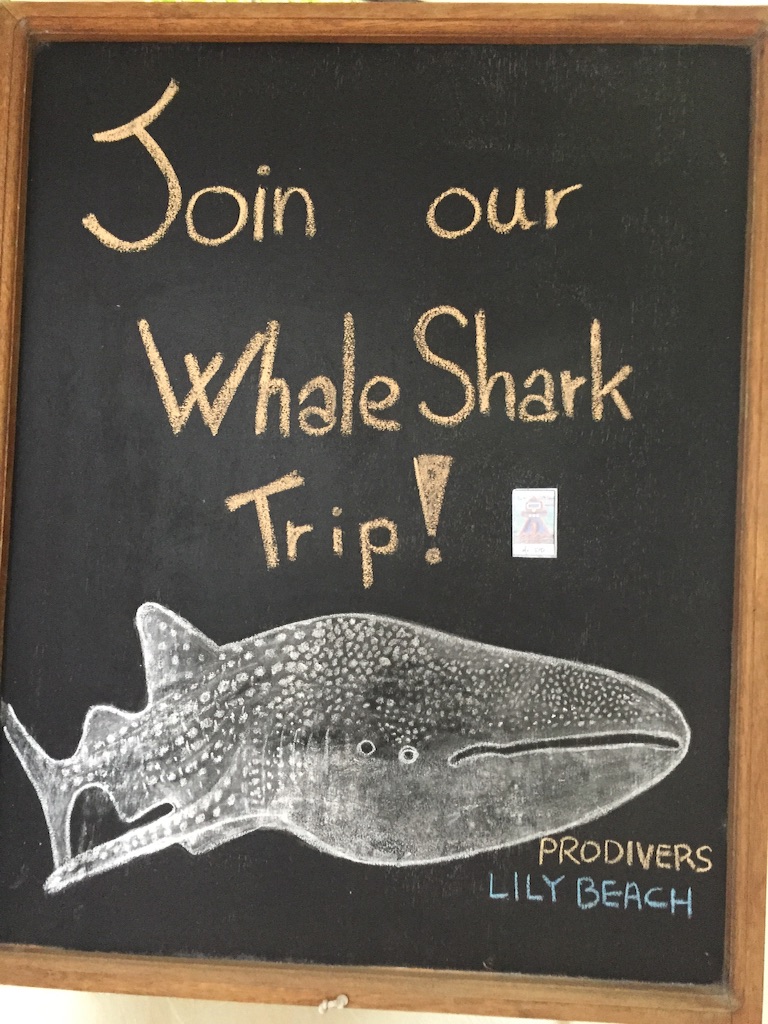 Join our
Whale Shark
Trip!
PRODIVERS
LILY BEACH